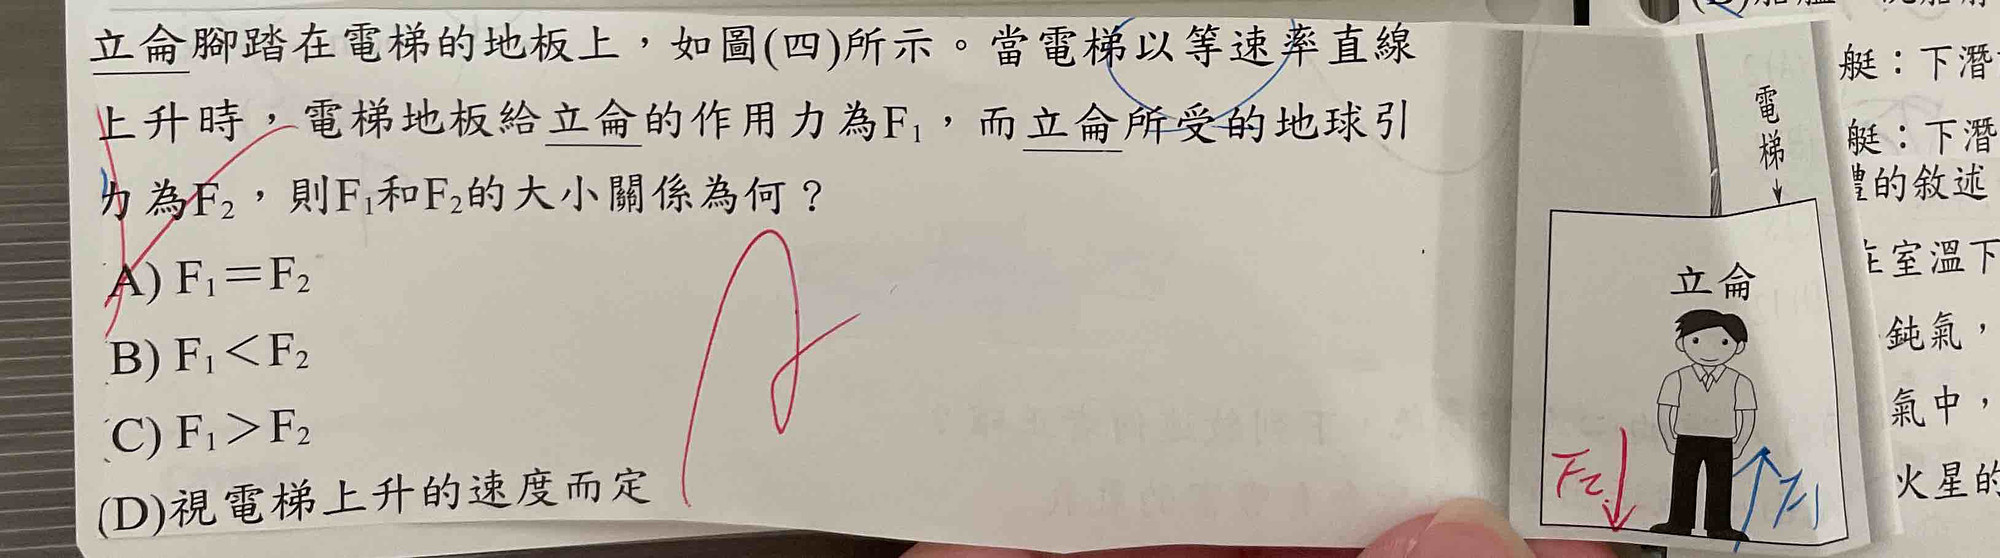 立侖腳踏在電梯的地板上，如圖(四)所示。當電梯以等速率直線
上升時，電梯地板給立侖的作用力為F₁，而立侖所受的地球引
力為F₂，則F₁和F₂的大小關係為何？
A) F₁＝F₂
B) F₁＜F₂
C) F₁＞F₂
(D)視電梯上升的速度而定
A
電梯
立侖
F₂
F₁
艇：下潛
艇：下潛
的敘述
在室溫下
鈍氣，
氣中，
火星的